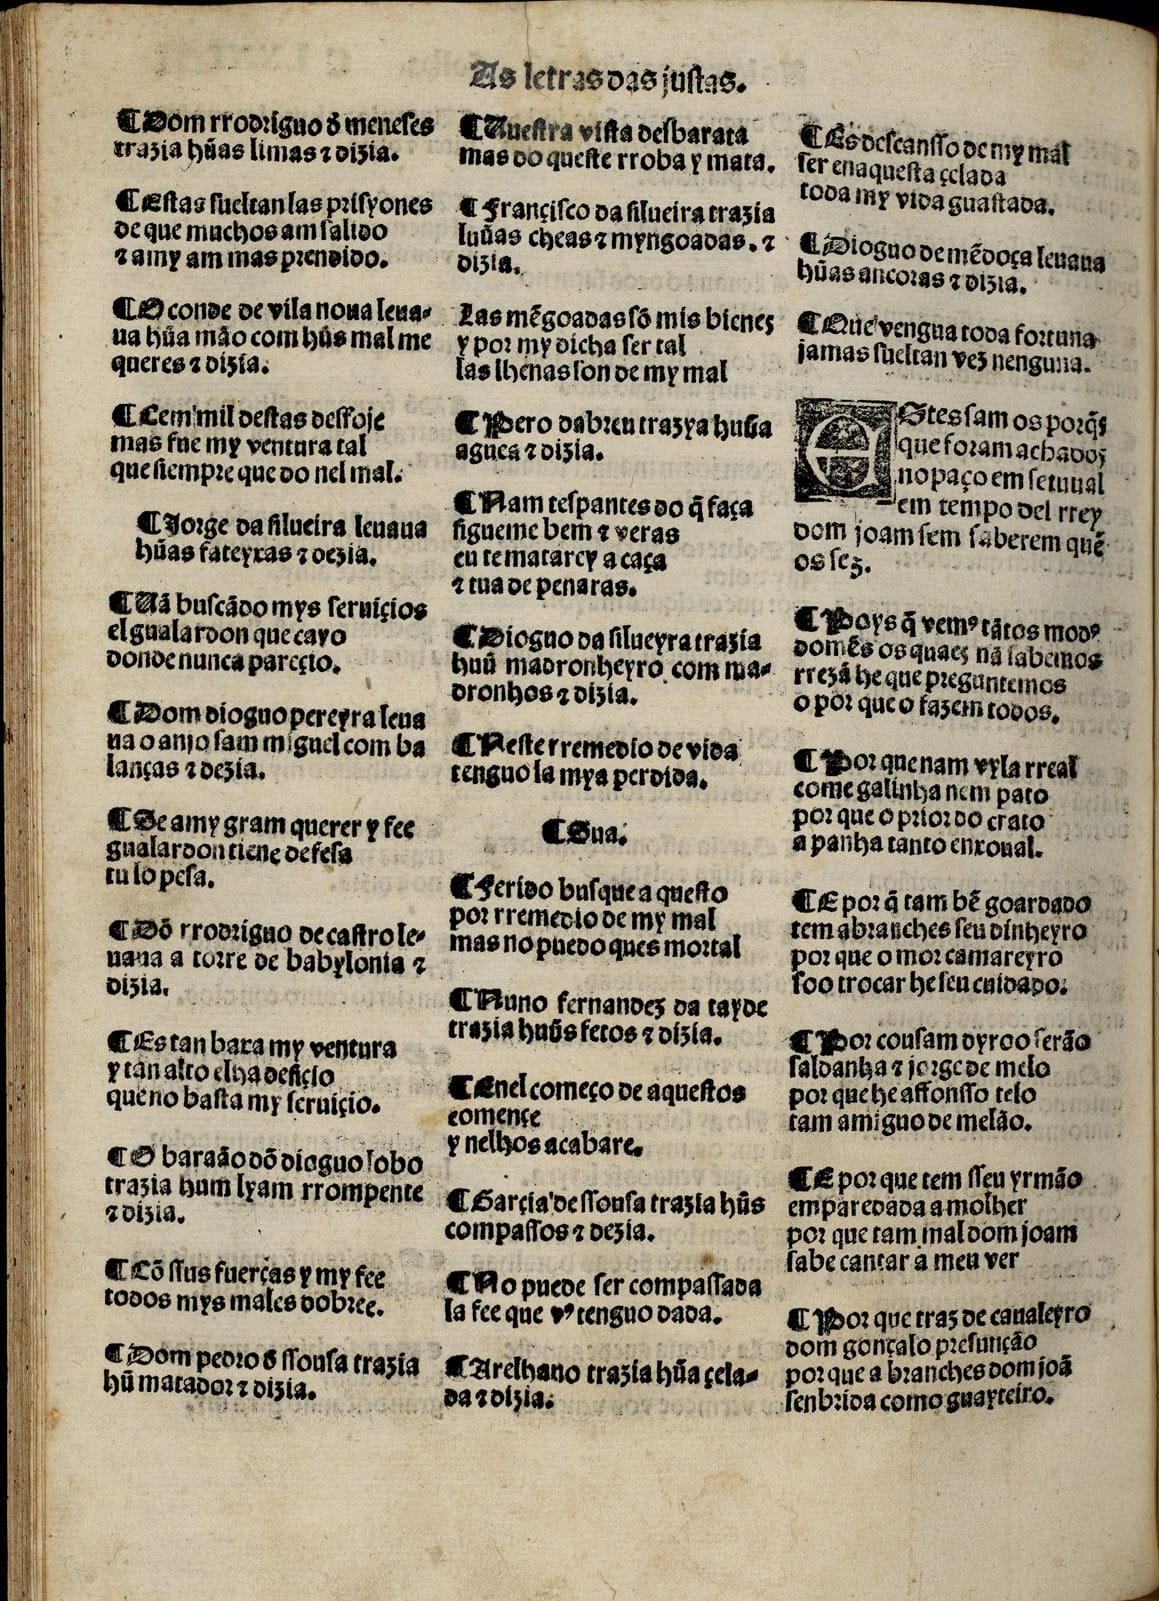 As letras das justas.
¶ Dom rrodriguo d̄ meneses
trazia hũas limas ⁊ dizia.
¶ Estas sueltan las prisyones
de que muchos am salido
⁊ a my am mas prendido.
¶ O conde de vila noua leua-
ua hũa mão com hũs mal me
queres ⁊ dizia.
¶ Cem mil destas desfoje
mas fue my ventura tal
que siempre que do nel mal.
¶ Jorge da silueira leuaua
hũas fateyxas ⁊ dezia.
¶ Uã buscãdo mys seruiçios
el gualardon que cayo
donde nunca pareçio.
¶ Dom dioguo pereyra leua
ua o anjo sam miguel com ba
lanças ⁊ dezia.
¶ De a my gram querer y fee
gualardon tiene defesa
tu lo pesa.
¶ Dõ rrodriguo de castro le-
uaua a torre de babylonia ⁊
dizia.
¶ Es tan baxa my ventura
y tan alto el hadefiçio
que no basta my seruiçio.
¶ O baraão dõ dioguo lobo
trazia hum lyam rrompente
⁊ dizia.
¶ Cõ ssus fuerças y my fee
todos mys males dobree.
¶ Dom pedro d̄ ssousa trazia
hũ matador ⁊ dizia.
¶ Nuestra vista desbarata
mas do queste rroba y mata.
¶ Françisco da silueira trazia
luũas cheas ⁊ myngoadas. ⁊
dizia.
Las mẽgoadas sõ mis bienes
y por my dicha ser tal
las lhenas son de my mal
¶ Pero dabreu trazya huũa
aguea ⁊ dizia.
¶ Nam tespantes do q̃ faça
sigueme bem ⁊ veras
eu te matarey a caça
⁊ tua de penaras.
¶ Dioguo da silueyra trazia
huũ madronheyro com ma-
dronhos ⁊ dizia.
¶ Neste rremedio de vida
tenguo la mya perdida.
¶ Sua.
¶ Ferido busque a questo
por rremedio de my mal
mas no puedo ques mortal
¶ Nuno fernandez da tayde
trazia huũs fetos ⁊ dizia.
¶ Enel começo de aquestos
començe
y nelhos acabare.
¶ Garçia de ssousa trazia hũs
compassos ⁊ dezia.
¶ No puede ser compassada
la fee que vꝰ tenguo dada.
¶ Arelhano trazia hũa çela-
da ⁊ dizia.
¶ Es descansso de my mal
ser enaquesta çelada
toda my vida guastada.
¶ Dioguo de mẽdoça leuaua
hũas ancoras ⁊ dizia.
¶ Que vengua toda fortuna
jamas sueltan vez nenguna.
EStes sam os porq̃s
que foram achados
no paço em setuual
em tempo del rrey
dom joam sem saberem quẽ
os fez.
¶ Poys q̃ vemꝰ tãtos modꝰ
domẽs os quaes nã sabemos
rrezã he que preguntemos
o por que o fazem todos.
¶ Por que nam vyla rreal
come galinha nem pato
por que o prior do crato
a panha tanto enxoual.
¶ E por q̃ tam bẽ goardado
tem abranches seu dinheyro
por que o mor camareyro
soo trocar he seu cuidado.
¶ Por cousam dyroo serão
saldanha ⁊ jorge de melo
por que he affonsso telo
tam amiguo de melão.
¶ E por que tem sseu yrmão
emparedada a molher
por que tam mal dom joam
sabe cantar a meu ver
¶ Por que traz de caualeyro
dom gonçalo presunção
por que a branches dom joã
senbrida como guayteiro.